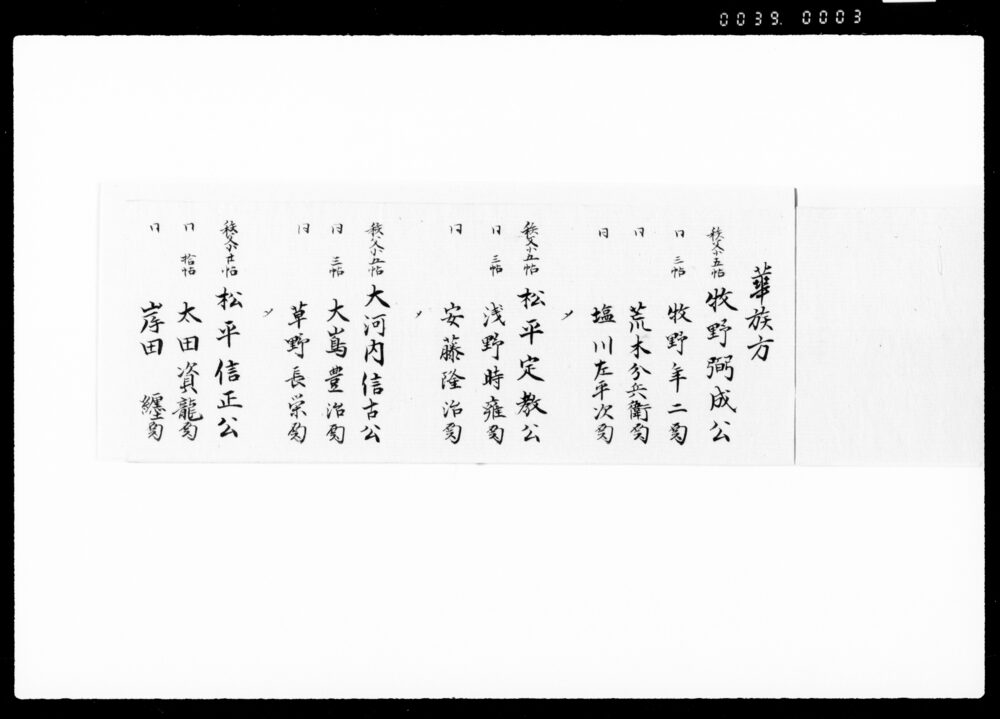 0039. 0003
華族方
秩父小五帖 牧野弼成公
同 三帖 牧野年二殿
同 荒木分兵衛殿
同 塩川左平次殿
〆
秩父小五帖 松平定教公
同 三帖 浅野時雍殿
同 安藤隆治殿
〆
秩父小五帖 大河内信古公
同 三帖 大嶌豊治殿
同 草野長栄殿
〆
秩父小廿帖 松平信正公
同 拾帖 太田資龍殿
同 岸田 纏殿